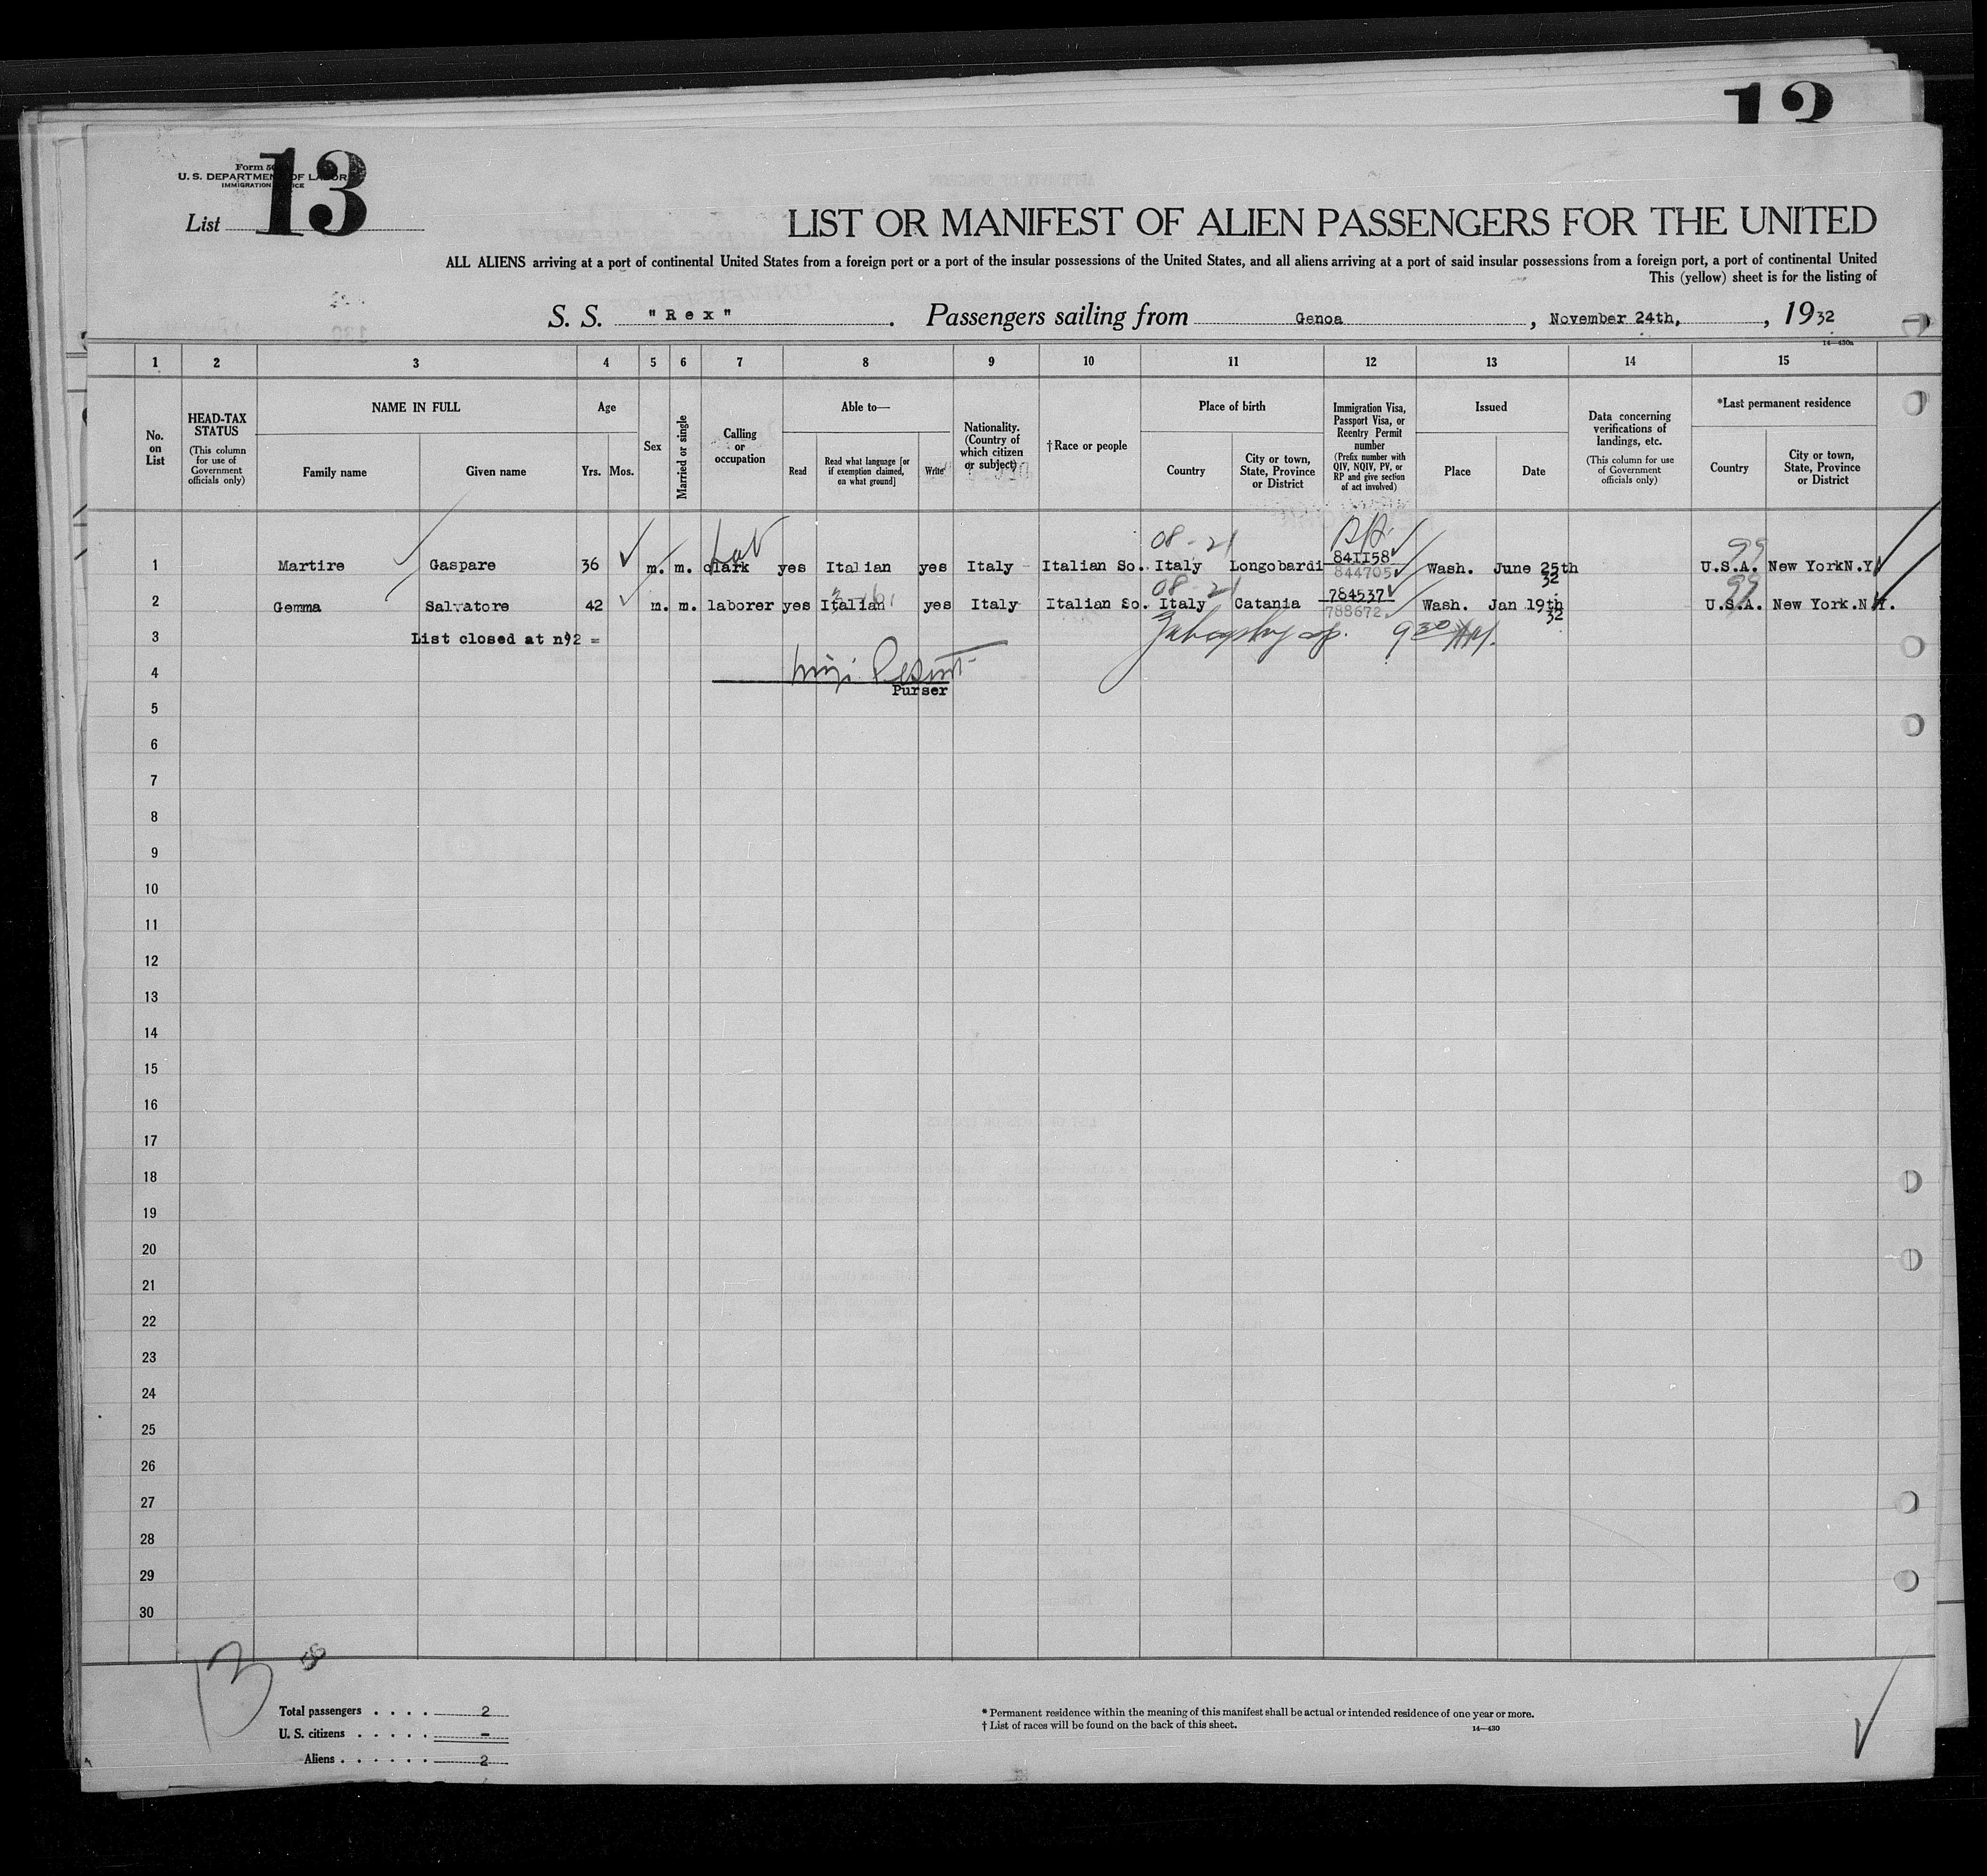 13
Form 50
U. S. DEPARTMENT OF LABOR
IMMIGRATION SERVICE
List 13
LIST OR MANIFEST OF ALIEN PASSENGERS FOR THE UNITED
ALL ALIENS arriving at a port of continental United States from a foreign port or a port of the insular possessions of the United States, and all aliens arriving at a port of said insular possessions from a foreign port, a port of continental United
This (yellow) sheet is for the listing of
S. S. "Rex". Passengers sailing from Genoa, November 24th, , 1932
14—430a
1 2 3 4 5 6 7 8 9 10 11 12 13 14 15
No. on List
HEAD-TAX STATUS (This column for use of Government officials only)
NAME IN FULL
Family name Given name
Age
Yrs. Mos.
Sex
Married or single
Calling or occupation
Able to—
Read Read what language [or if exemption claimed, on what ground] Write
Nationality. (Country of which citizen or subject)
†Race or people
Place of birth
Country City or town, State, Province or District
Immigration Visa, Passport Visa, or Reentry Permit number (Prefix number with QIV, NQIV, PV, or RP and give section of act involved)
Issued
Place Date
Data concerning verifications of landings, etc. (This column for use of Government officials only)
*Last permanent residence
Country City or town, State, Province or District
08-21 99
1 Martire Gaspare 36 m. m. clark Lab yes Italian yes Italy Italian So. Italy Longobardi 841158 844705 Wash. June 25th 32 U.S.A. New York N.Y.
08-21 99
2 Gemma Salvatore 42 m. m. laborer yes Italian yes Italy Italian So. Italy Catania 784537 788672 Wash. Jan 19th 32 U.S.A. New York.N.Y.
3 List closed at nº2 = 9 30 AM.
4
Purser
5
6
7
8
9
10
11
12
13
14
15
16
17
18
19
20
21
22
23
24
25
26
27
28
29
30
13
Total passengers . . . . 2
U. S. citizens . . . . . -
Aliens . . . . . . 2
* Permanent residence within the meaning of this manifest shall be actual or intended residence of one year or more.
† List of races will be found on the back of this sheet.
14—430